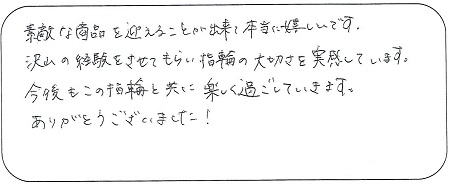 素敵な商品を迎えることが出来て本当に嬉しいです.
沢山の経験をさせてもらい指輪の大切さを実感しています。
今後もこの指輪と共に楽しく過ごしていきます。
ありがとうございました!